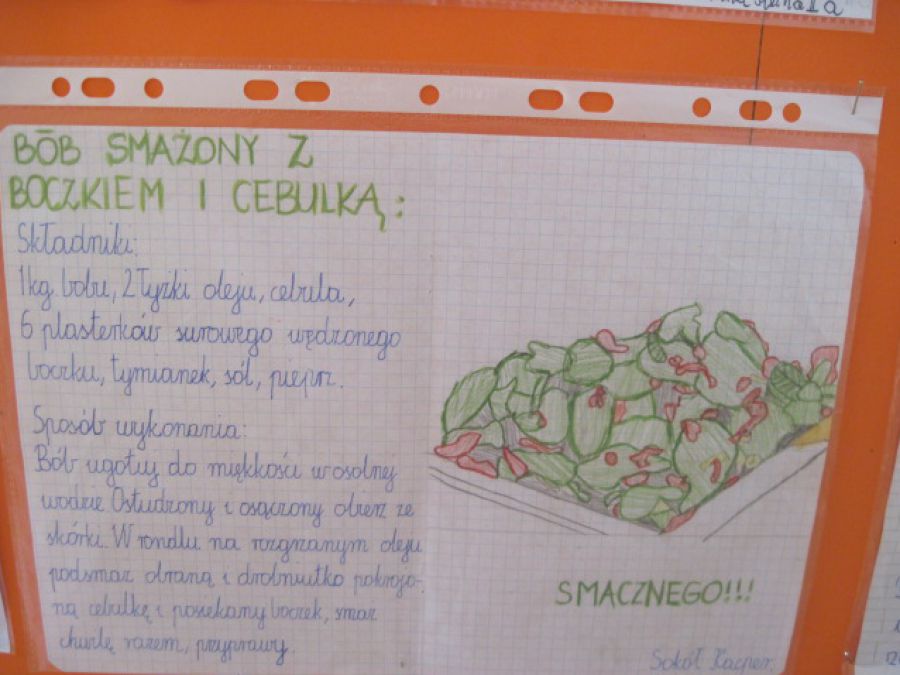 BŌB SMAŻONY Z
BOCZKIEM I CEBULKĄ:
Składniki:
1kg. bobu, 2 łyżki oleju, cebula,
6 plasterków surowego wędzonego
boczku, tymianek, sól, pieprz.
Sposób wykonania:
Bób ugotuj do miękkości w osolnej
wodzie. Ostudzony i osączony obierz ze
skórki. W rondlu na rozgrzanym oleju
podsmaż obraną i drobniutko pokrojo-
ną cebulkę i posiekany boczek, smaż
chwilę razem, przyprawy.
SMACZNEGO!!!
Sokół Kacper.